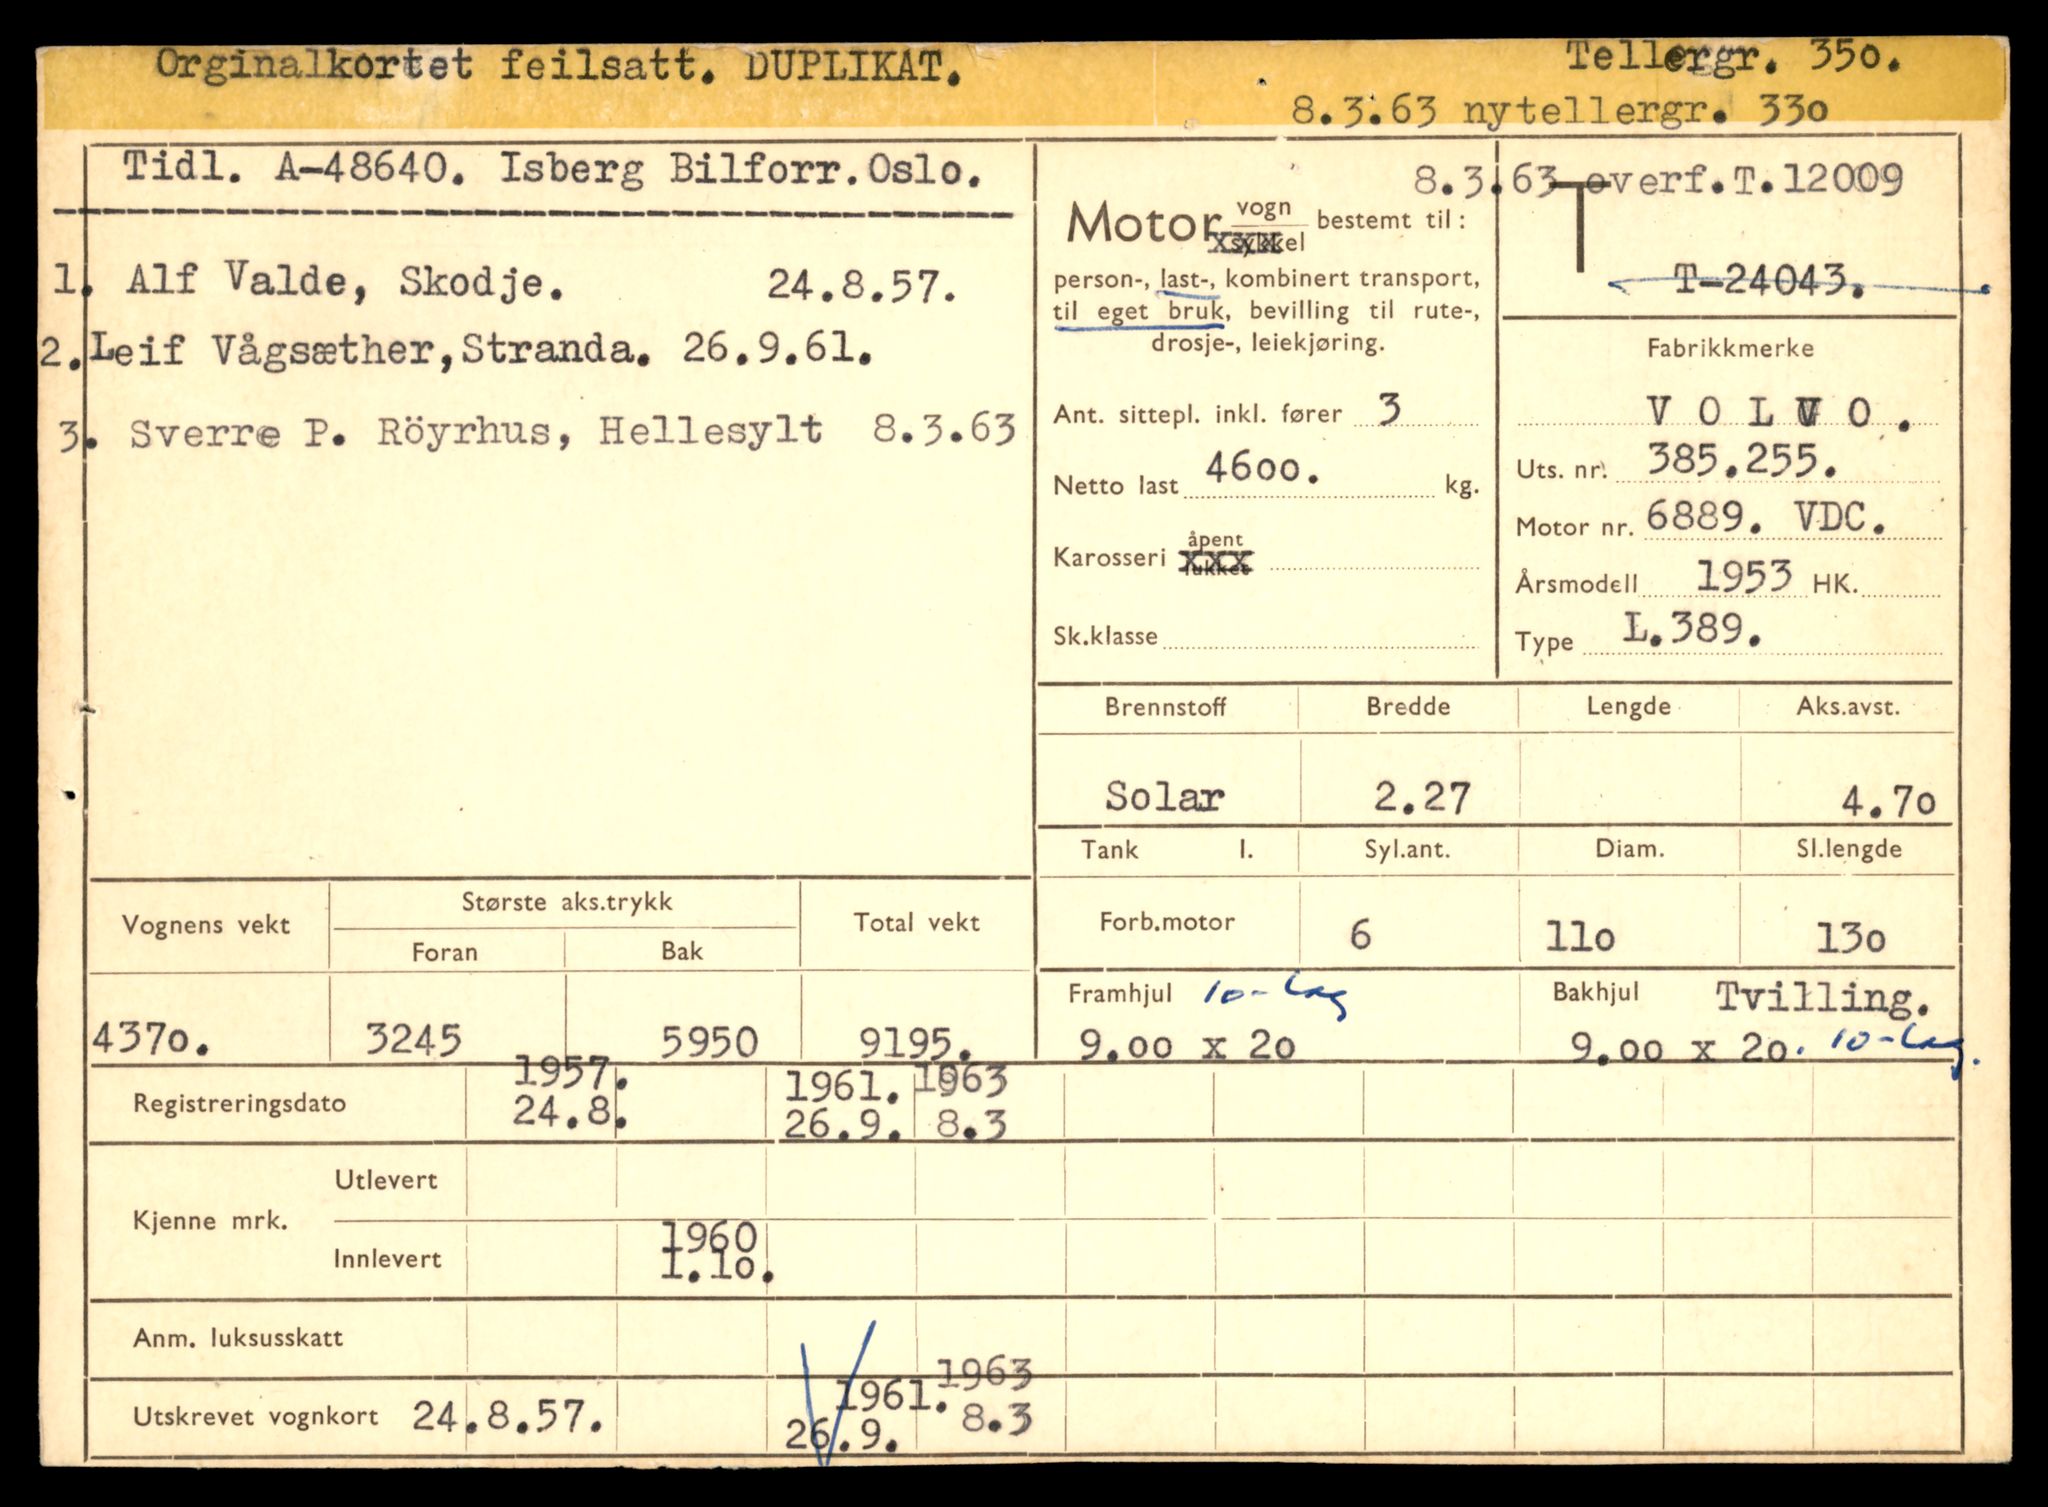 Orginalkortet feilsatt. DUPLIKAT.
Tellergr. 350.
8.3.63 nytellergr. 330
Tidl. A-48640. Isberg Bilforr. Oslo.
1. Alf Valde, Skodje. 24.8.57.
2. Leif Vågsæther, Stranda. 26.9.61.
3. Sverre P. Röyrhus, Hellesylt 8.3.63
8.3.63 overf.T.12009
Motor vogn
sykkel bestemt til:
person-, last-, kombinert transport,
til eget bruk, bevilling til rute-,
drosje-, leiekjøring.
Ant. sittepl. inkl. fører 3
Netto last 4600. kg.
Karosseri åpent
lukket
Sk.klasse
T
T-24043.
Fabrikkmerke
VOLVO.
Uts. nr. 385.255.
Motor nr. 6889. VDC.
Årsmodell 1953 HK.
Type L.389.
Brennstoff Bredde Lengde Aks.avst.
Solar 2.27 4.70
Tank l. Syl.ant. Diam. Sl.lengde
Forb.motor 6 110 130
Framhjul 10-Lag Bakhjul Tvilling.
9.00 x 20 9.00 x 20. 10-Lag.
Vognens vekt Største aks.trykk Total vekt
Foran Bak
4370. 3245 5950 9195.
Registreringsdato 1957. 1961. 1963
24.8. 26.9. 8.3
Kjenne mrk. Utlevert
Innlevert 1960
1.10.
Anm. luksusskatt
Utskrevet vognkort 24.8.57. 1961. 1963
26.9. 8.3